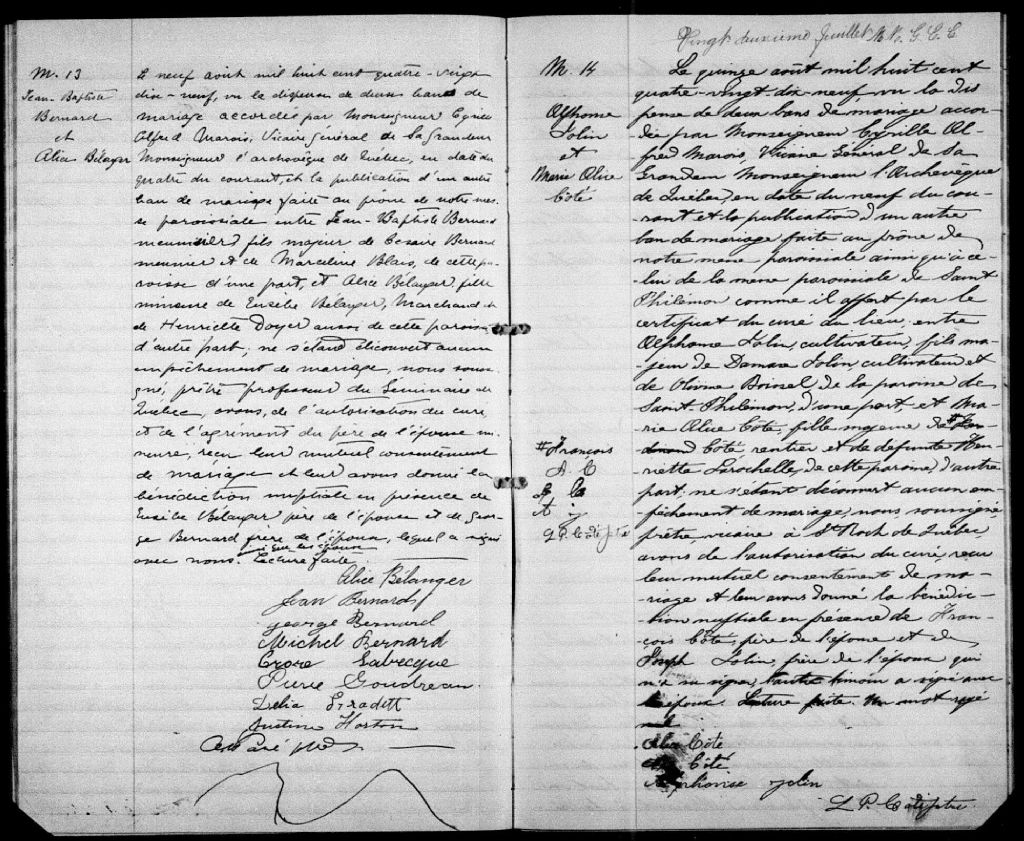 M. 13
Jean-Baptiste
Bernard
et
Alice Bélanger
Le neuf août mil huit cent quatre-vingt
dix-neuf, vu la dispense de deux bans de
mariage accordée par Monseigneur Cyrille
Alfred Marois, Vicaire général de Sa Grandeur
Monseigneur l'archevêque de Québec, en date du
quatre du courant, et la publication d'un autre
ban de mariage faite au prône de notre mes-
se paroissiale entre Jean-Baptiste Bernard
meunier fils majeur de Cesaire Bernard
meunier et de Marceline Blais, de cette pa-
roisse d'une part, et Alice Bélanger, fille
mineure de Eusèbe Bélanger, Marchand et
de Henriette Doyer aussi de cette paroisse
d'autre part; ne s'étant découvert aucun
empêchement de mariage, nous sous-
gné, prêtre professeur du Séminaire de
Québec, avons, de l'autorisation du curé,
et de l'agrément du père de l'épouse mi-
neure, reçu leur mutuel consentement
de mariage et leur avons donné la
bénédiction nuptiale en présence de
Eusèbe Bélanger père de l'épouse et de Geor-
ge Bernard frère de l'époux, lequel a signé
ainsi que les époux
avec nous. Lecture faite.
Alice Bélanger
Jean Bernard
george Bernard
Michel Bernard
Labrecque
Pierre Goudreau
Delia
Justine Horton
Paré ptre
Vingt deuxième Juillet
M. 14
Alphonse
Jolin
et
Marie Alice
Côté
Le quinze août mil huit cent
quatre-vingt-dix-neuf vu la dis
pense de deux bans de mariage accor-
dée par Monseigneur Cyrille Al-
fred Marois, Vicaire Général de Sa
Grandeur Monseigneur l'Archevêque
de Québec, en date du neuf du cou-
rant et la publication d'un autre
ban de mariage faite au prône de
notre messe paroissiale ainsi qu'à ce-
lui de la messe paroissiale de Saint
Philémon comme il appert par le
certificat du curé du lieu, entre
Alphonse Jolin, cultivateur, fils ma-
jeur de Damase Jolin, cultivateur et
de Olivine Boissel de la paroisse de
Saint-Philémon, d'une part, et Ma-
rie Alice Côté, fille majeure de #
Côté rentier et de défunte Hen-
riette Larochelle, de cette paroisse, d'autre
part; ne s'étant découvert aucun em-
pêchement de mariage, nous soussigné
prêtre, vicaire à St Roch de Québec,
avons de l'autorisation du curé, reçu
leur mutuel consentement de ma-
riage et leur avons donné la bénédic-
tion nuptiale en présence de Fran-
çois Côté, père de l'épouse et de
Joseph Jolin, frère de l'époux qui
n'a su signer, l'autre témoin a signé avec
l'époux. Lecture faite. Un mot rayé
nul
# François
A C
A j
Alice Côté
Côté
Alphonse Jolin
L. P. Côté ptre